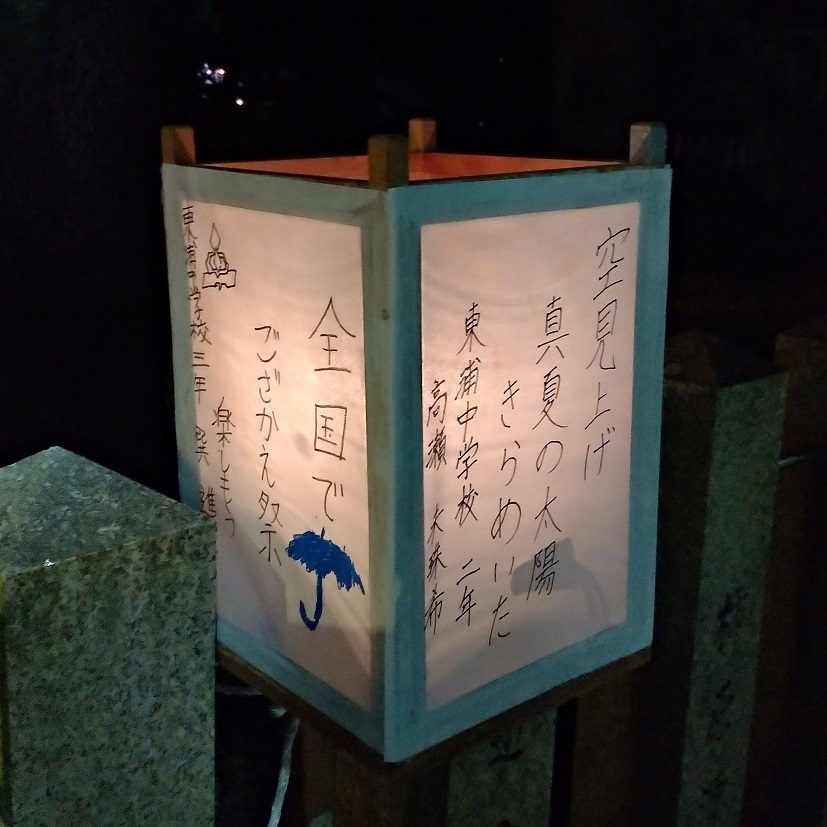 空見上げ
真夏の太陽
きらめいた
東浦中学校 二年
高瀬
全国で
ござかえ祭
楽しもう
東浦中学校三年 巽 進